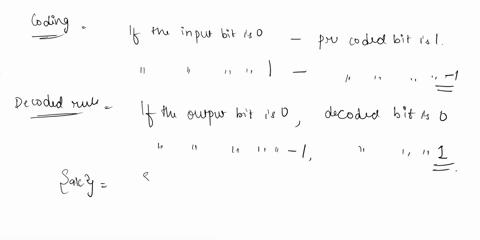 Coding - If the input bit is 0 - pre coded bit is 1.
" " " " 1 - " " " " -1
Decoded rule - If the output bit is 0, decoded bit is 0
" " " " " -1, " " " 1.
{ak} =